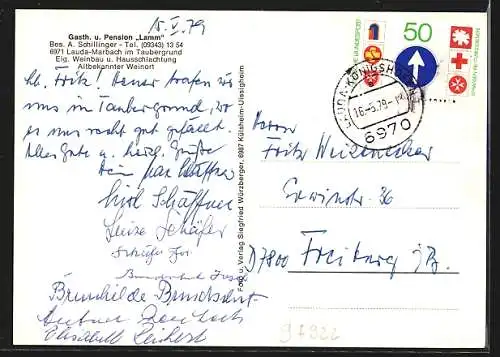 15.V.79
Gasth. u. Pension „Lamm"
Bes. A. Schillinger - Tel. (09343) 13 54
6971 Lauda-Marbach im Taubergrund
Eig. Weinbau u. Hausschlachtung
Altbekannter Weinort
Lb. Fritz! Heuer trafen wir
uns im Taubergrund, wo
es uns recht gut gefällt.
Alles Gute u. herzl. Grüße
Dein
Schäffner
Luise Schäfer
Brunhilde
Elisabeth
Foto u. Verlag Siegfried Würzberger, 6987 Külsheim-Uissigheim
DEUTSCHE BUNDESPOST
50
LAUDA-KÖNIGSHOFEN
16.-5.79-
6970
Herrn
Fritz
Erwinstr. 36
D7800 Freiburg i/B.